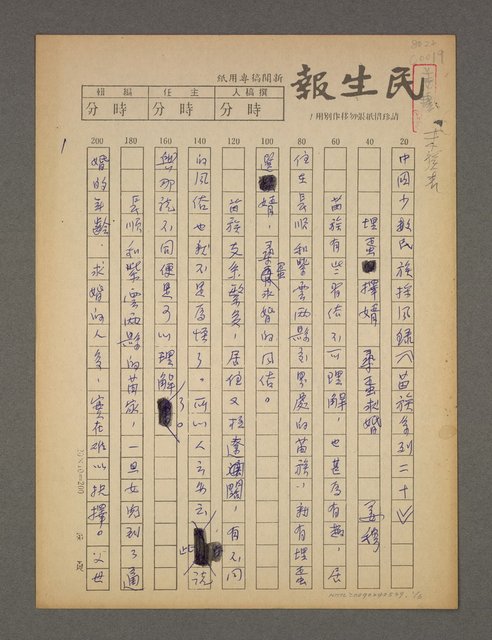 民生報
新聞稿專用紙
撰稿人 主任 編輯
時分 時分 時分
請珍惜紙張勿移作別用！
中國少數民族採風錄（苗族系列二十）
埋蛋擇婿 尋蛋求婚 姜穆
苗族有些習俗不可理解，也甚為有趣，居
住在長順和紫雲兩縣交界處的苗族，就有埋蛋
選婿，尋蛋求婚的風俗。
苗族支系繁多，居住又極遼闊，有不同
的風俗也就不足為怪了。所以人云亦云些說
與那說不同便是可以理解了。
長順和紫雲兩縣的苗家，一旦女兒到了適
婚的年齡，求婚的人多，實在難以抉擇。父母
20
40
60
80
100
120
140
160
180
200
20×10=200